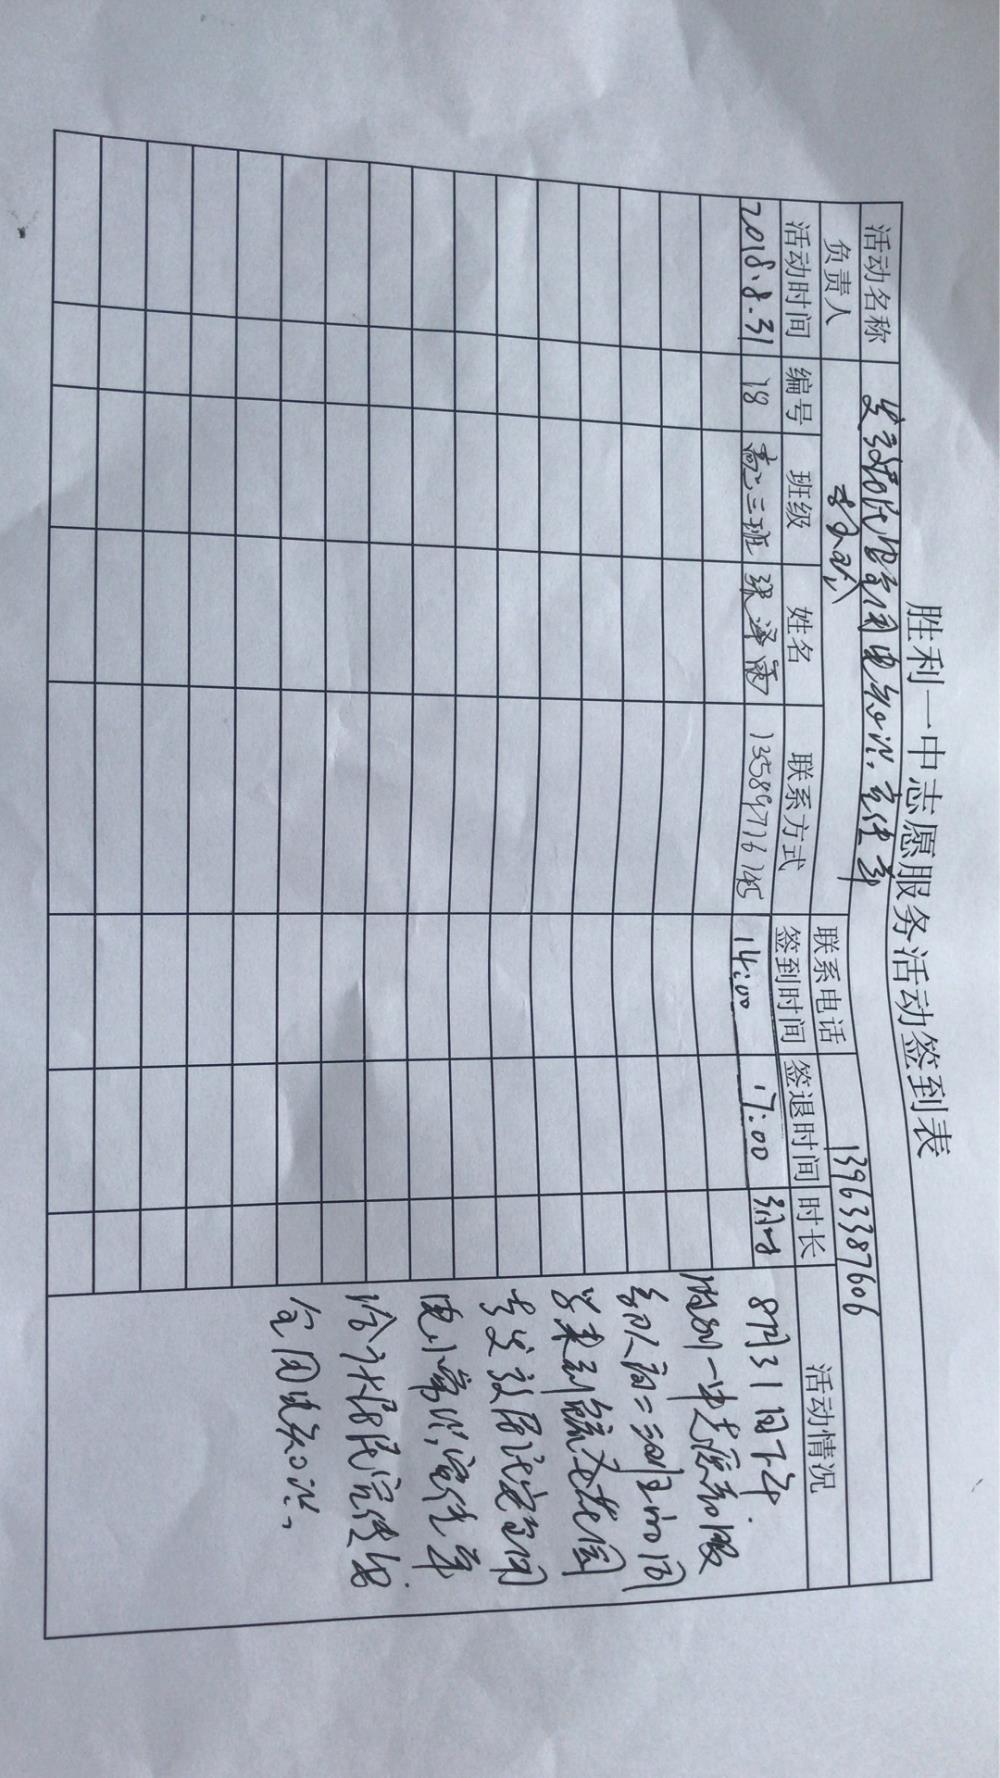 胜利一中志愿服务活动签到表
活动名称 发放居民安全用电知识宣传单
负责人 联系电话 13963387606
活动时间 编号 班级 姓名 联系方式 签到时间 签退时间 时长 活动情况
2018.8.31 18 高二三班 张泽雨 13589716745 14:00 17:00 3小时
8月31日下午
胜利一中志愿服
务队高二三班的同
学来到
发放居民安全用
电小常识宣传单
给居民宣传安
全用电知识。